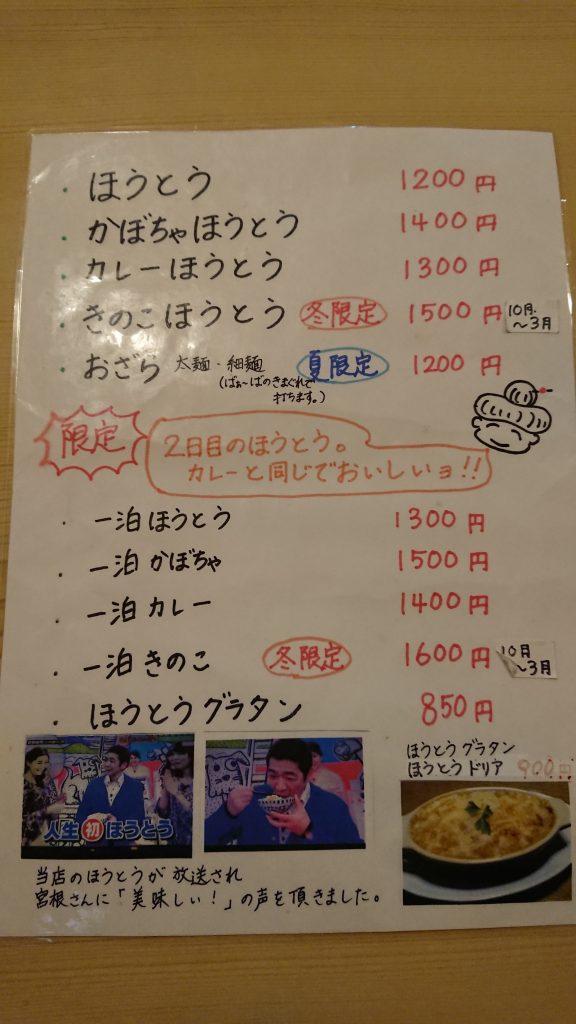 ・ほうとう 1200円
・かぼちゃほうとう 1400円
・カレーほうとう 1300円
・きのこほうとう 冬限定 1500円 10月.
～3月
・おざら 太麺・細麺 夏限定 1200円
(ばぁ～ばのきまぐれで
打ちます。)
限定
2日目のほうとう。
カレーと同じでおいしいョ!!
・一泊ほうとう 1300円
・一泊かぼちゃ 1500円
・一泊カレー 1400円
・一泊きのこ 冬限定 1600円 10月
～3月
・ほうとうグラタン 850円
ほうとうグラタン
ほうとうドリア 900円
人生初ほうとう
当店のほうとうが放送され
宮根さんに「美味しい!」の声を頂きました。